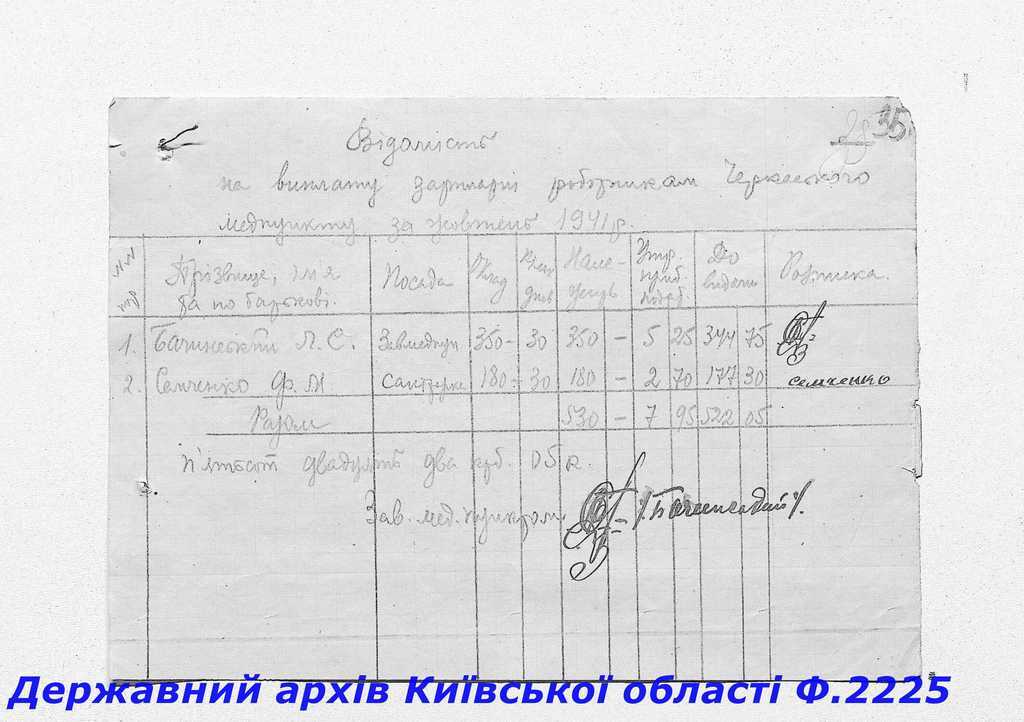 28 35
Відомість
на виплату зарплатні робітникам Черкаського
медпункту за жовтень 1941 р.
Прізвище, імя та по батькові. Посада Оклад Кільк днів Нале- жить Утр. приб. подат. До видачі Розписка.
1. Бачинський Л. Є. Завмедпун 350 - 30 350 - 5 25 344 75
2. Семченко Ф. М 180 - 30 180 - 2 70 177 30 Семченко
Разом 530 - 7 95 522 05
п'ятьсот двадцять два крб. 05 к.
Зав. мед. пунктом /Бачинський/.
Державний архів Київської області Ф.2225